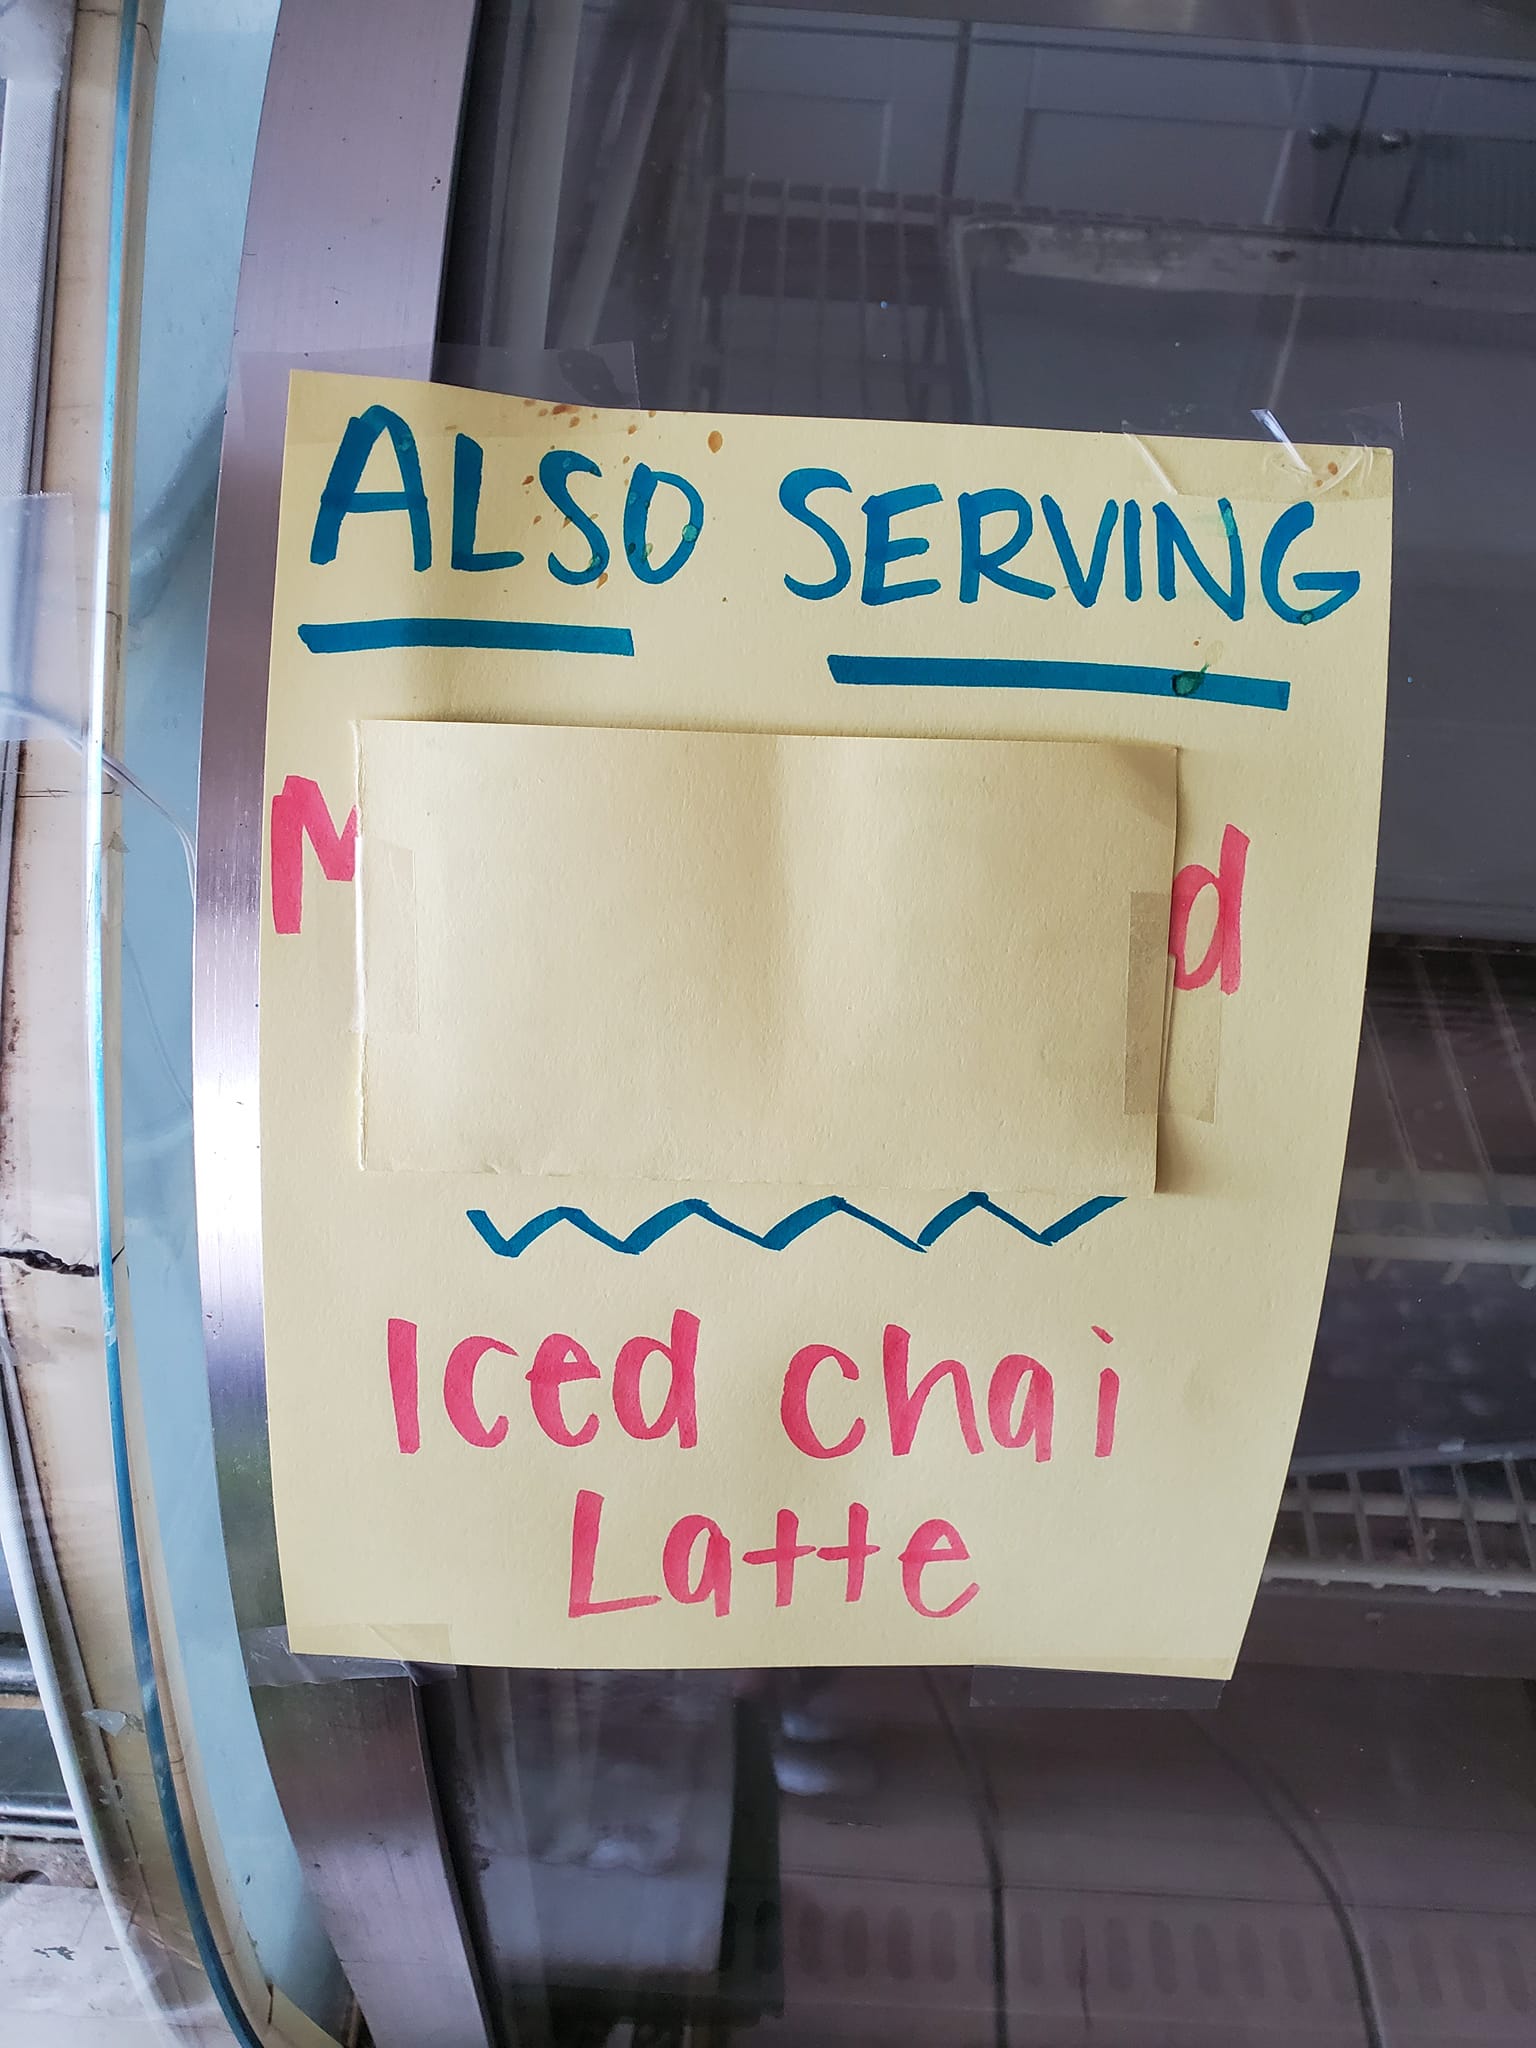 ALSO SERVING
M d
Iced chai
Latte